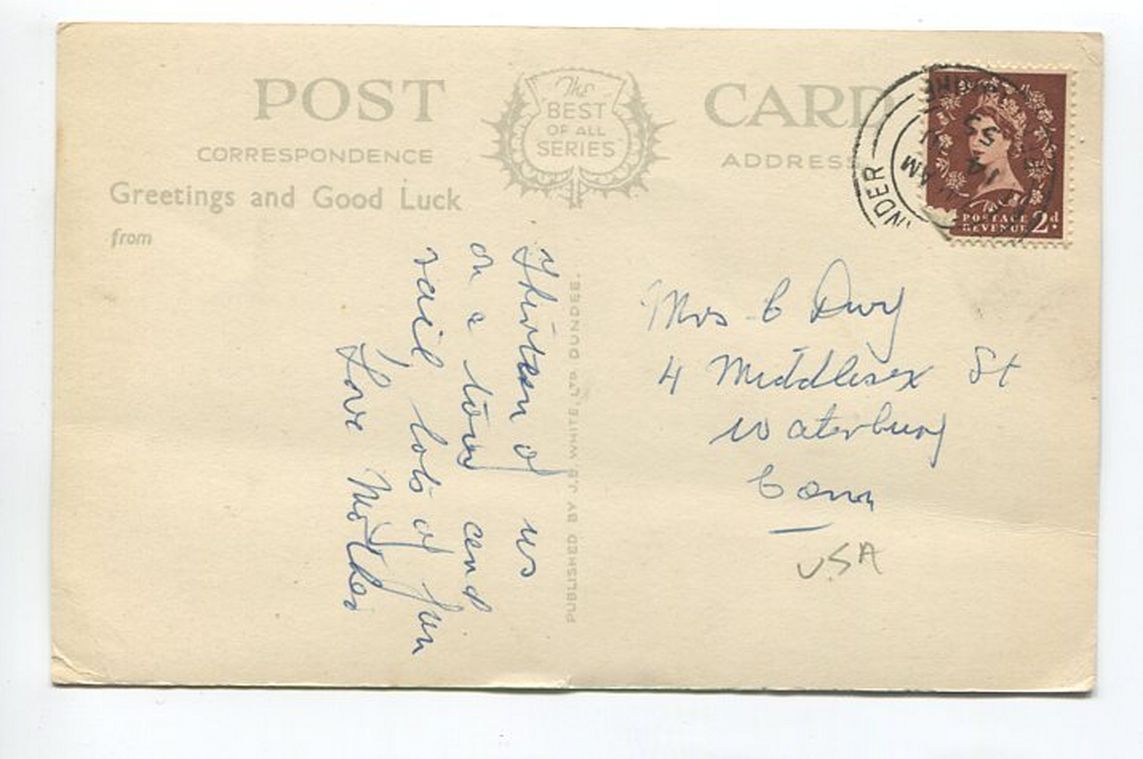 POST CARD
The
BEST
OF ALL
SERIES
CORRESPONDENCE
ADDRESS
Greetings and Good Luck
from
Thirteen of us
on a tour and
sail lots of fun
Love Mother
PUBLISHED BY J.B. WHITE, LTD DUNDEE.
Mrs C
4 Middlesex St
Waterbury
Conn
USA
NDER
AM
14
53
POSTAGE
REVENUE 2d